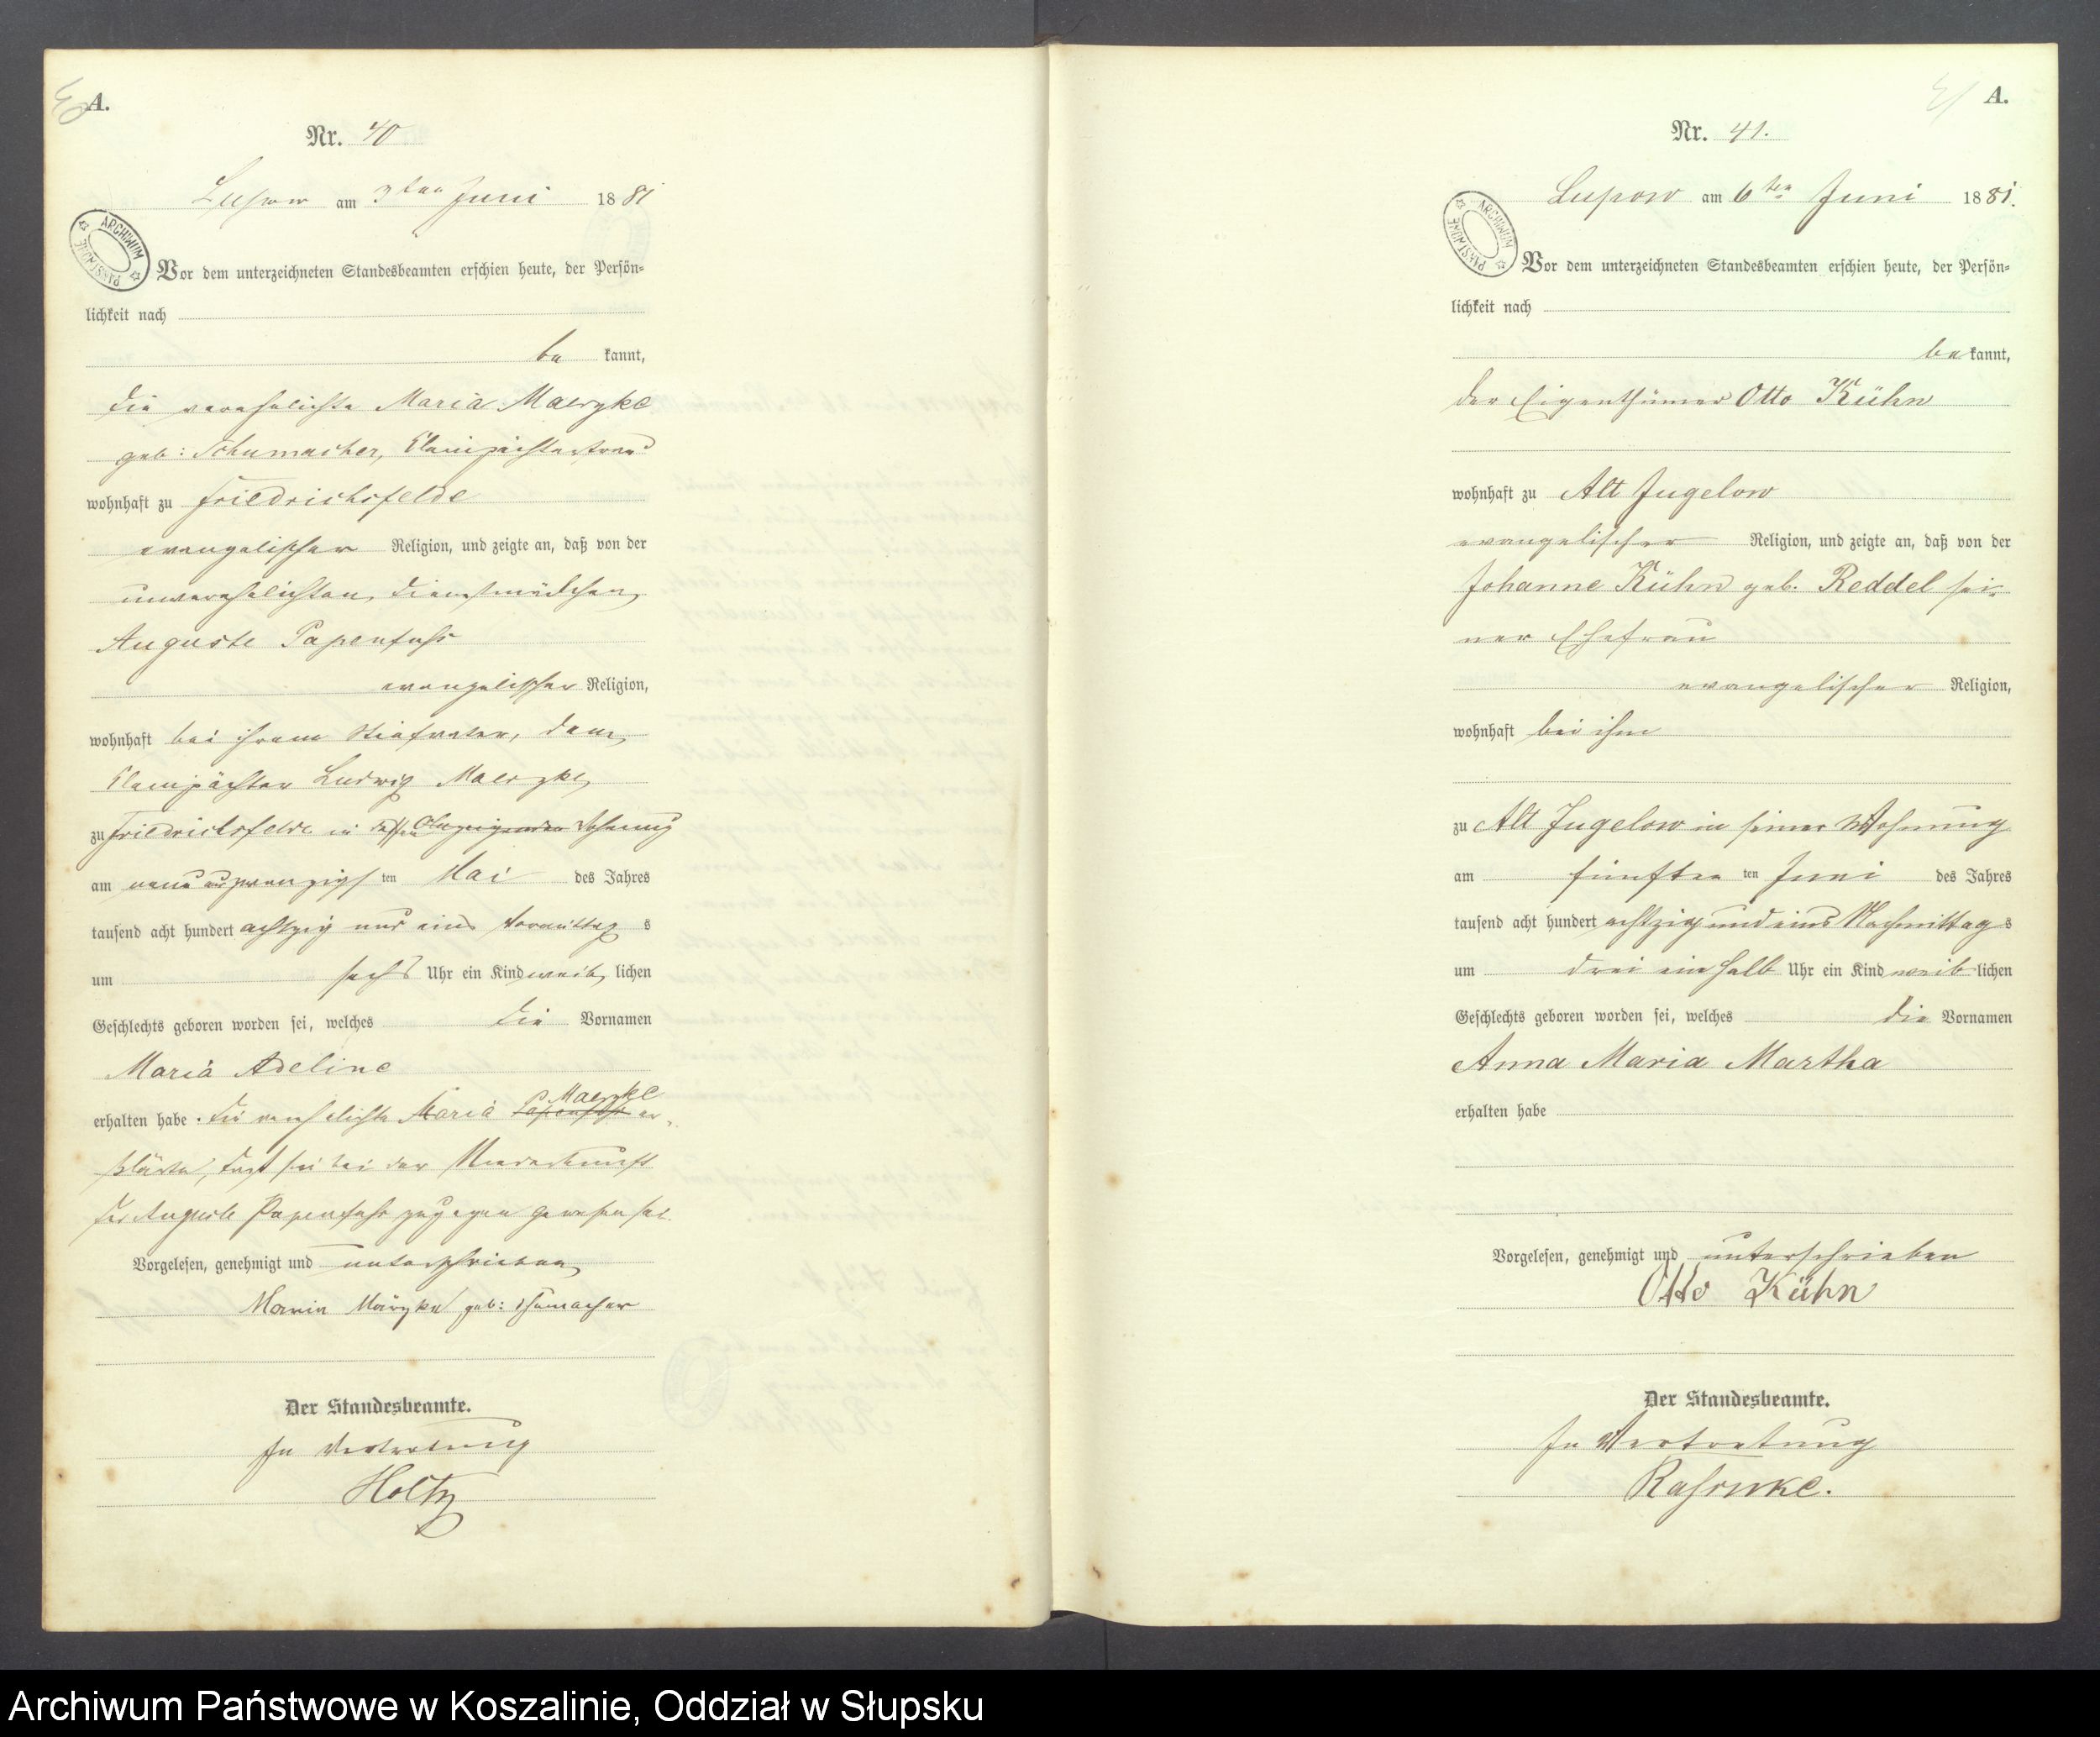 A.
Nr. 40
Lupow am 3ten Juni 1881
ARCHIWUM PAŃSTWOWE
Vor dem unterzeichneten Standesbeamten erschien heute, der Persön-
lichkeit nach
be kannt,
die verehelichte Maria Maerzke
geb: Schumacher, Kleinpächterfrau
wohnhaft zu Friedrichsfelde
evangelischer Religion, und zeigte an, daß von der
unverehelichten Dienstmädchen
Auguste Papenfuhs
evangelischer Religion,
wohnhaft bei ihrem Stiefvater, dem
Kleinpächter Ludwig Maerzke
zu Friedrichsfelde in dessen Wohnung
am neun und zwanzigsten Mai des Jahres
tausend acht hundert achtzig und eins Vormittags
um sechs Uhr ein Kind weib lichen
Geschlechts geboren worden sei, welches die Vornamen
Maria Adeline
Maerzke
erhalten habe. Die verehelichte Maria Papenfuhs er-
klärte, daß sie bei der Niederkunft
der Auguste Papenfuhs zugegen gewesen sei.
Vorgelesen, genehmigt und unterschrieben
Maria Märzke geb: Schumacher
Der Standesbeamte.
In Vertretung
Holtz
A.
Nr. 41.
Lupow am 6ten Juni 1881.
ARCHIWUM PAŃSTWOWE
Vor dem unterzeichneten Standesbeamten erschien heute, der Persön-
lichkeit nach
be kannt,
der Eigenthümer Otto Kühn
wohnhaft zu Alt Jugelow
evangelischer Religion, und zeigte an, daß von der
Johanne Kühn geb. Reddel sei-
ner Ehefrau
evangelischer Religion,
wohnhaft bei ihm
zu Alt Jugelow in seiner Wohnung
am fünften ten Juni des Jahres
tausend acht hundert achtzig und eins Nachmittags
um drei ein halb Uhr ein Kind weib lichen
Geschlechts geboren worden sei, welches die Vornamen
Anna Maria Martha
erhalten habe
Vorgelesen, genehmigt und unterschrieben
Otto Kühn
Der Standesbeamte.
In Vertretung
Archiwum Państwowe w Koszalinie, Oddział w Słupsku